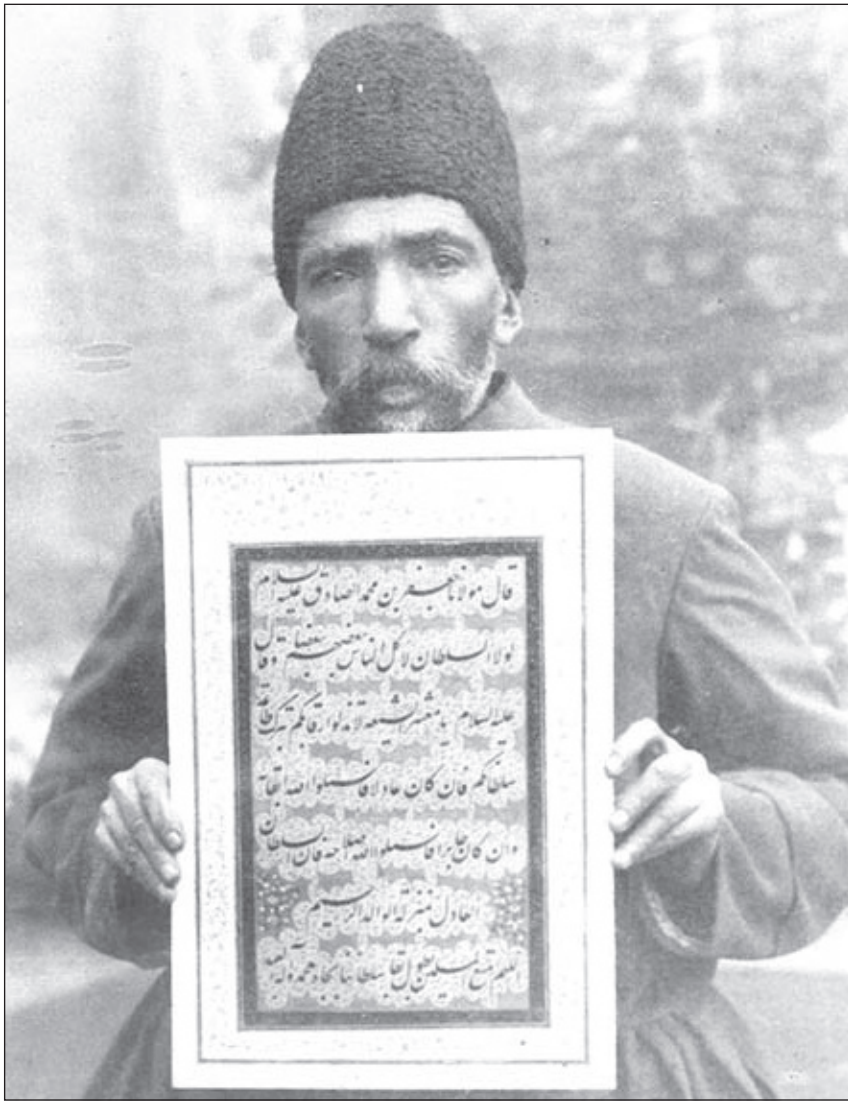 قال مولانا جعفر بن محمد الصادق علیه السلام
لولا السلطان لاکل الناس بعضهم بعضا وقال
علیه السلام یا معشر الشیعه لا تذلوا رقابکم بترک طاعة
سلطانکم فان کان عادلا فاسئلوا الله ابقاه
وان کان جابرا فاسئلوا الله اصلاحه فان السلطان
العادل بمنزلة الوالد الرحیم
اللهم متع المسلمین بطول بقاء سلطاننا بجاه محمد وآله